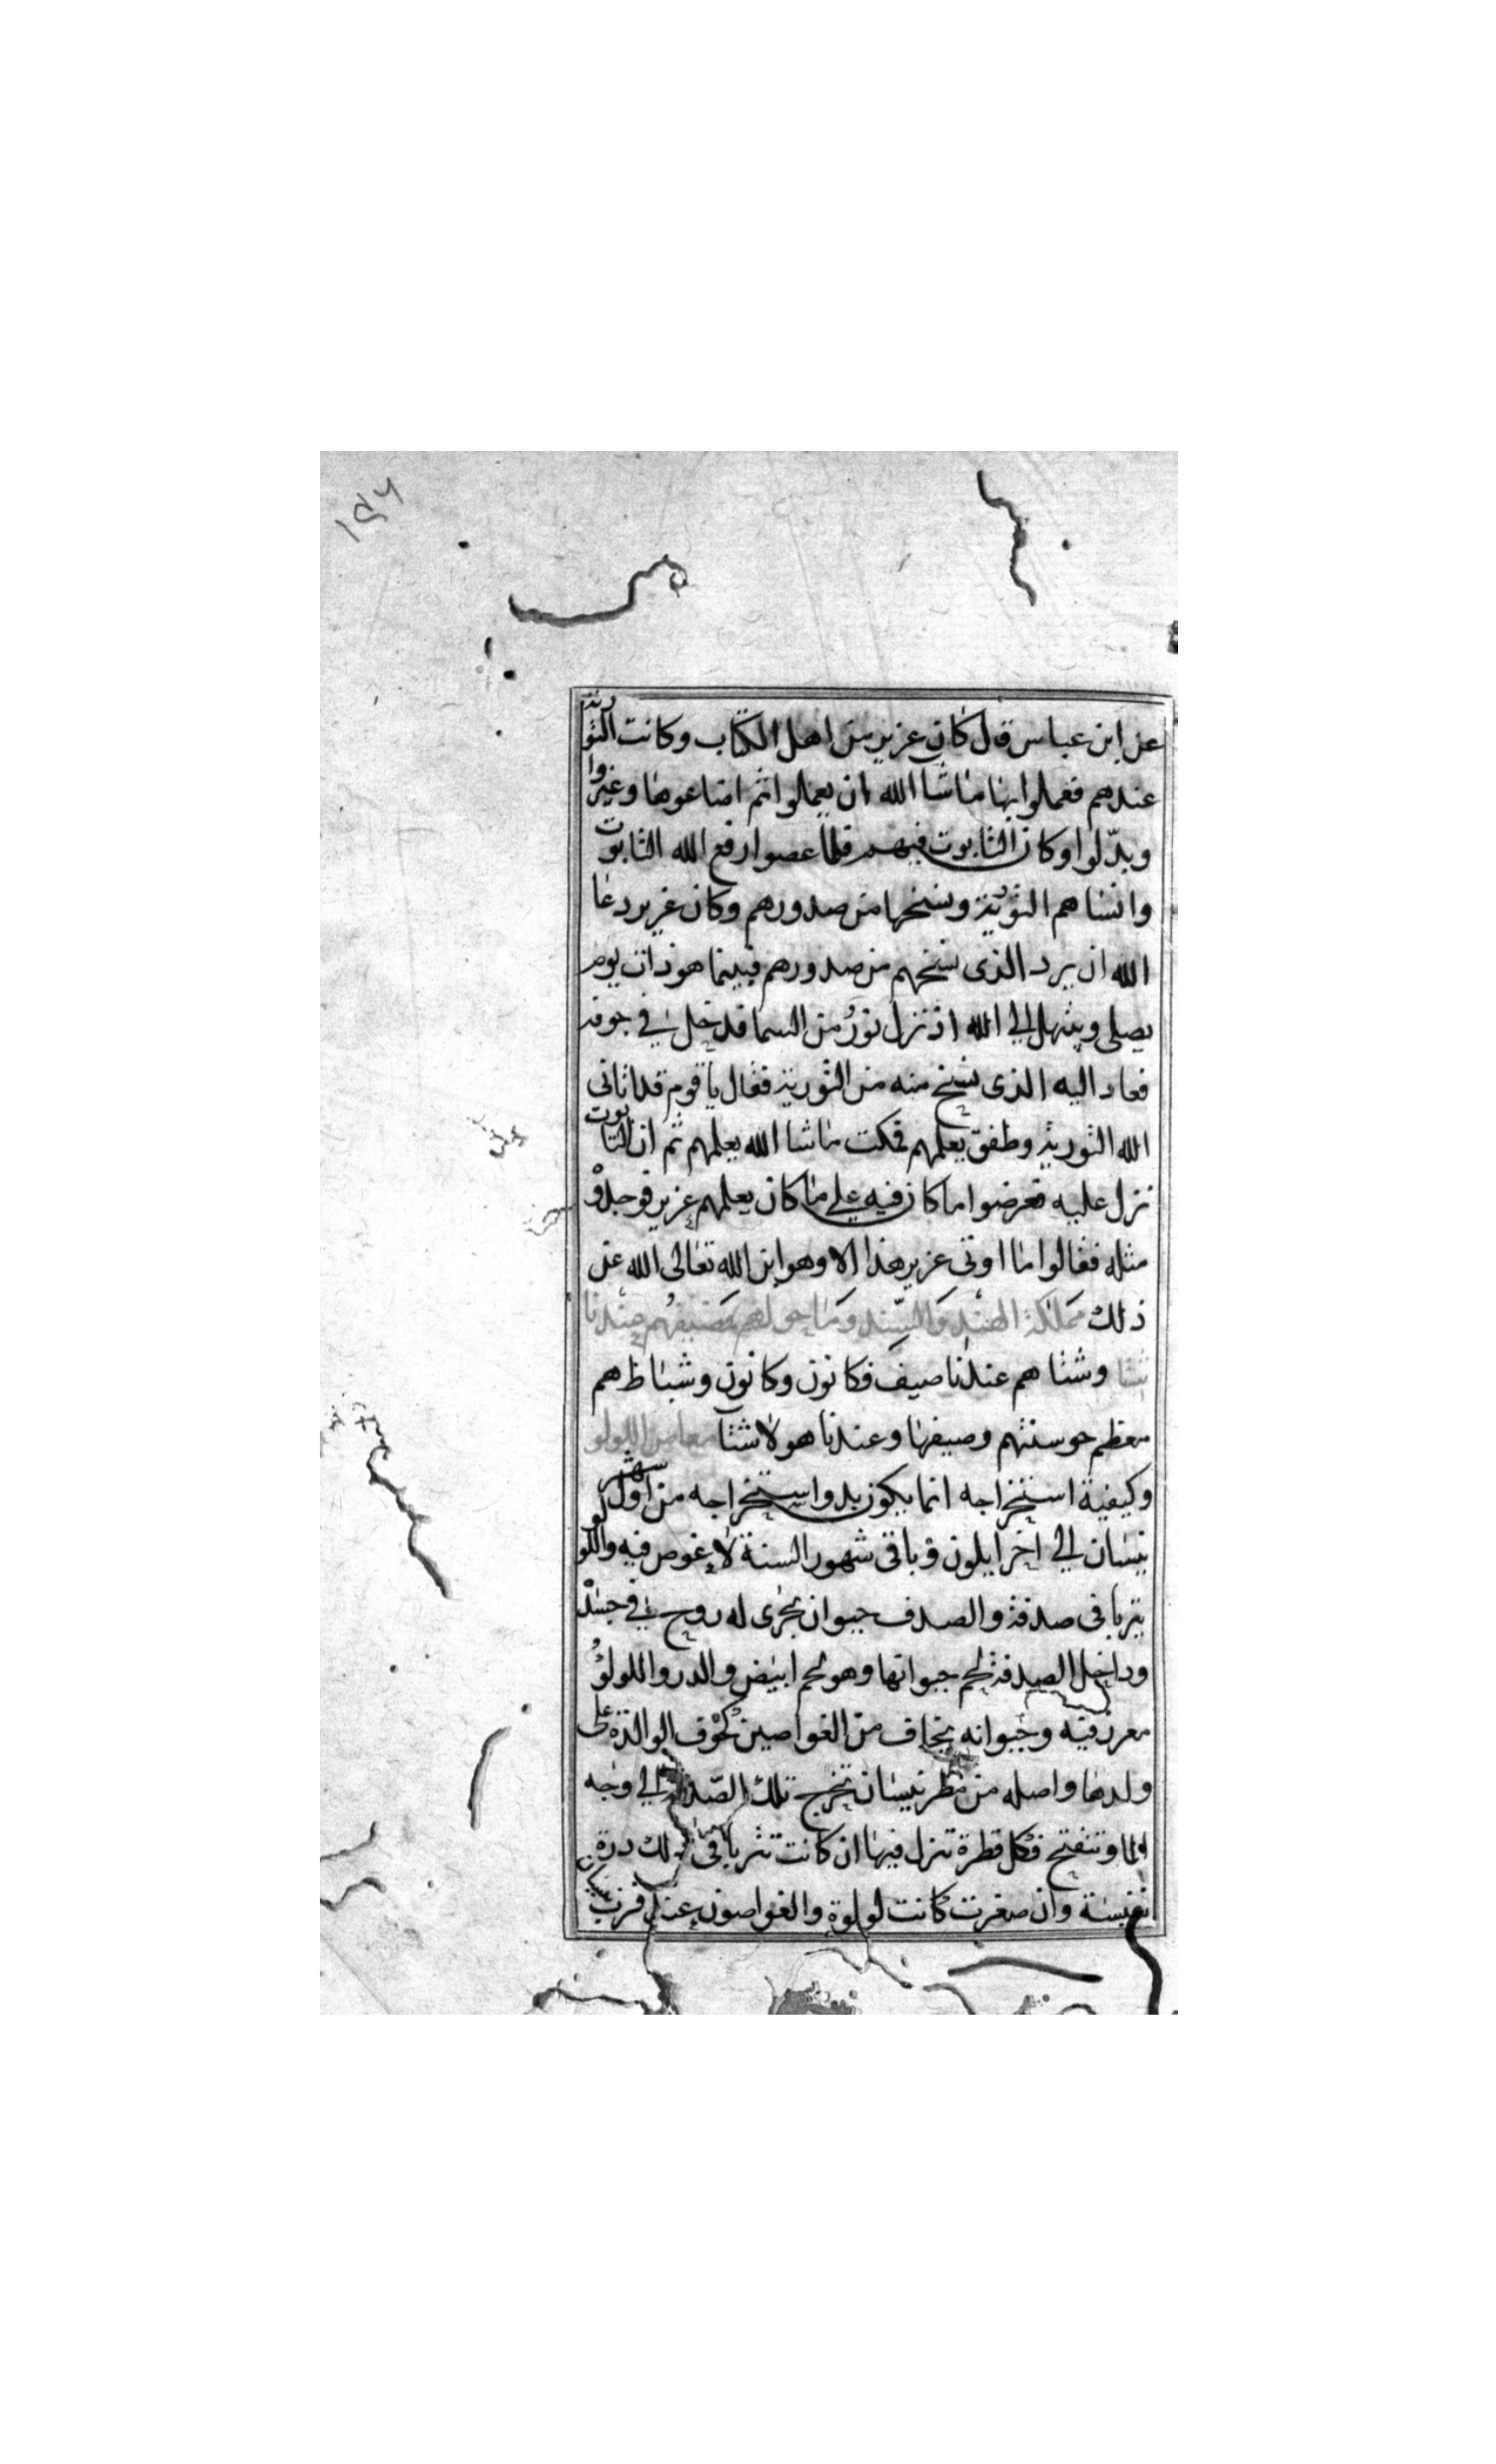 ١٥٦
عن ابن عباس قال كان عزير من اهل الكتاب وكانت التورية
عندهم فعملوا بها ما شا الله ان يعملوا ثم اضاعوها وغيروا
وبدّلوا وكان التابوت فيهم فلما عصوا رفع الله التابوت
وانساهم التورية ونسخها من صدورهم وكان عزير دعا
الله ان يرد الذى نسخهم من صدورهم فبينما هو ذات يوم
يصلى ويبتهل الى الله اذ نزل نورٌ من السما فدخل في جوفه
فعاد اليه الذى نسخ منه من التورية فقال يا قوم قد اتانى
الله التورية وطفق يعلمهم فمكت ما شا الله يعلمهم ثم ان التابوت
نزل عليه فعرضوا ما كان فيه على ما كان يعلمهم عزير فوجدوْ
مثله فقالوا ما اوتى عزير هذا الا وهو ابن الله تعالى الله عن
ذلك مملكة الهند والسّند وما حولهم فصيفهم عندنا
شتا وشتاهم عندنا صيف فكانون وكانون وشباط هم
معظم حوسنتهم وصيفها وعندنا هولا شتا معاص اللولو
وكيفية استخراجه انما يكون بدو استخراجه من اول شهر
نيسان الى اخر ايلون وباقى شهور السنة لا غوص فيه واللولو
يتربا فى صدفة والصدف حيوان يجرى له روح في جسد
وداخل الصدفة لحم حيوانها وهو لحم ابيض والدر واللولوُ
معرز فيه وحيوانه يخاف من الغواصين كخوف الوالدة على
ولدها واصله من مطر نيسان تخرج تلك الصّدف الى وجه
الما وتنفتح فكل قطرة تنزل فيها ان كانت تتربا فى ذلك درة
نفيسة وان صغرت كانت لولوة والغواصون عندى